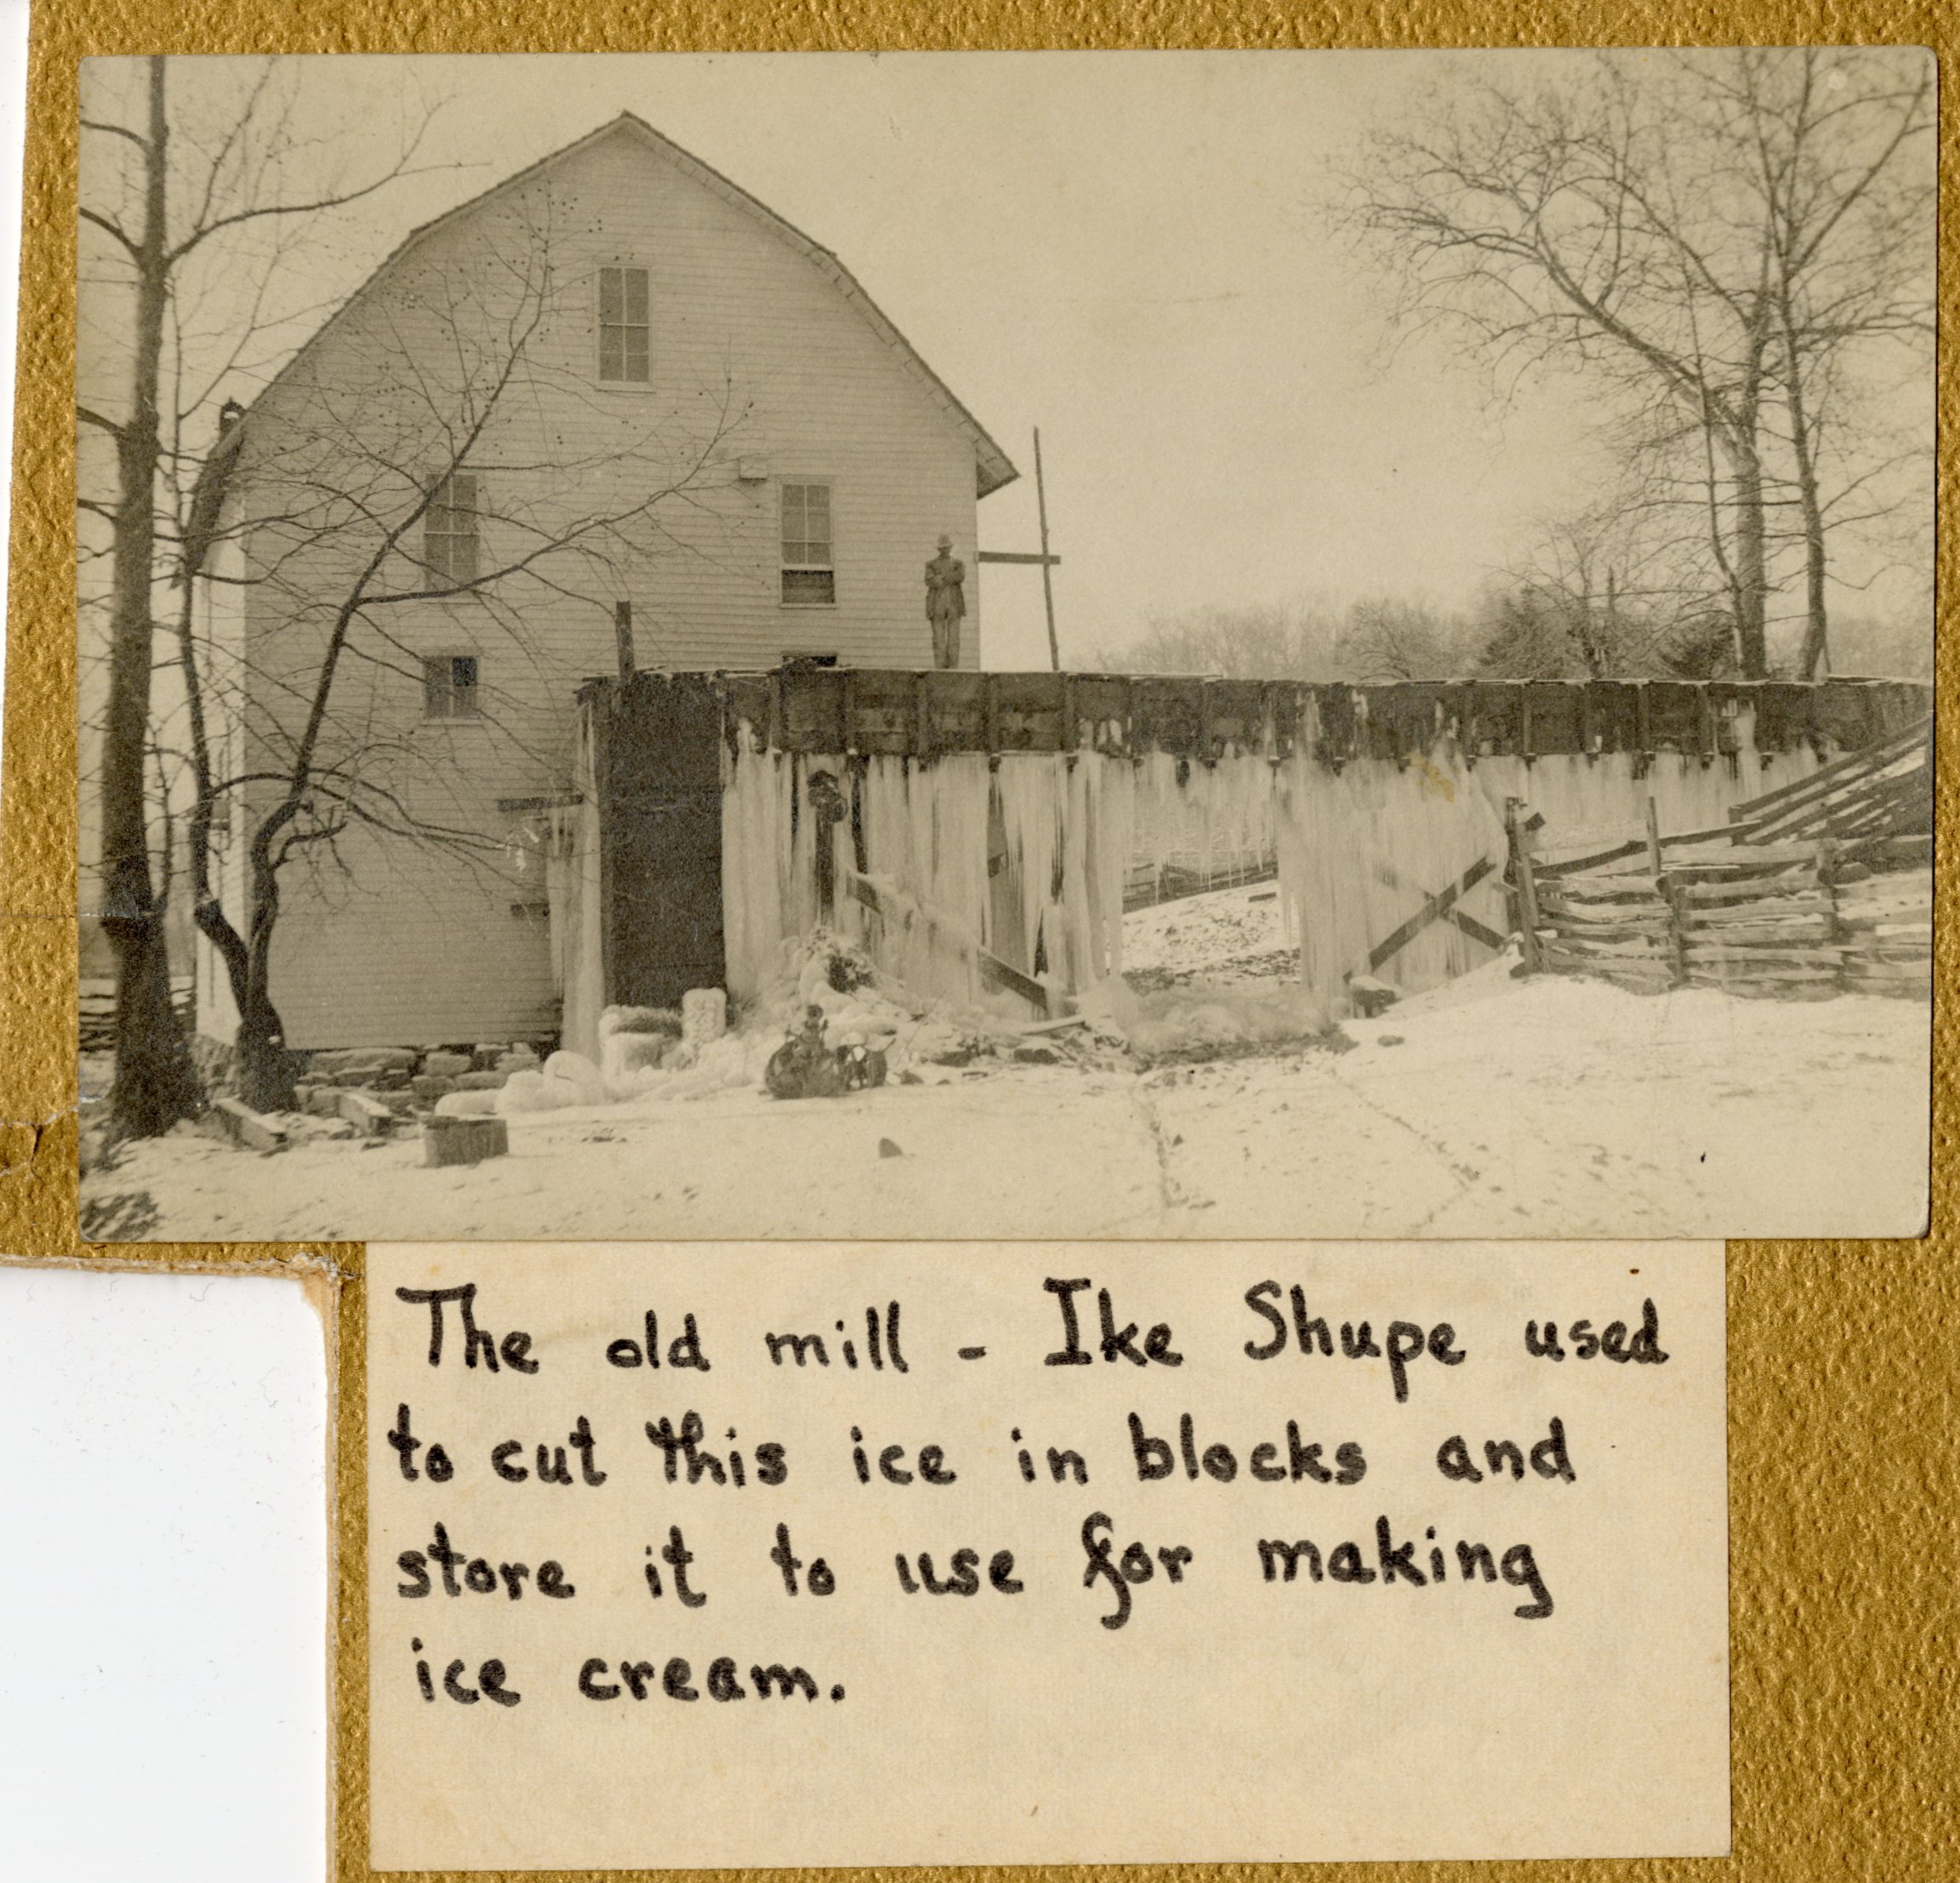 The old mill - Ike Shupe used
to cut this ice in blocks and
store it to use for making
ice cream.